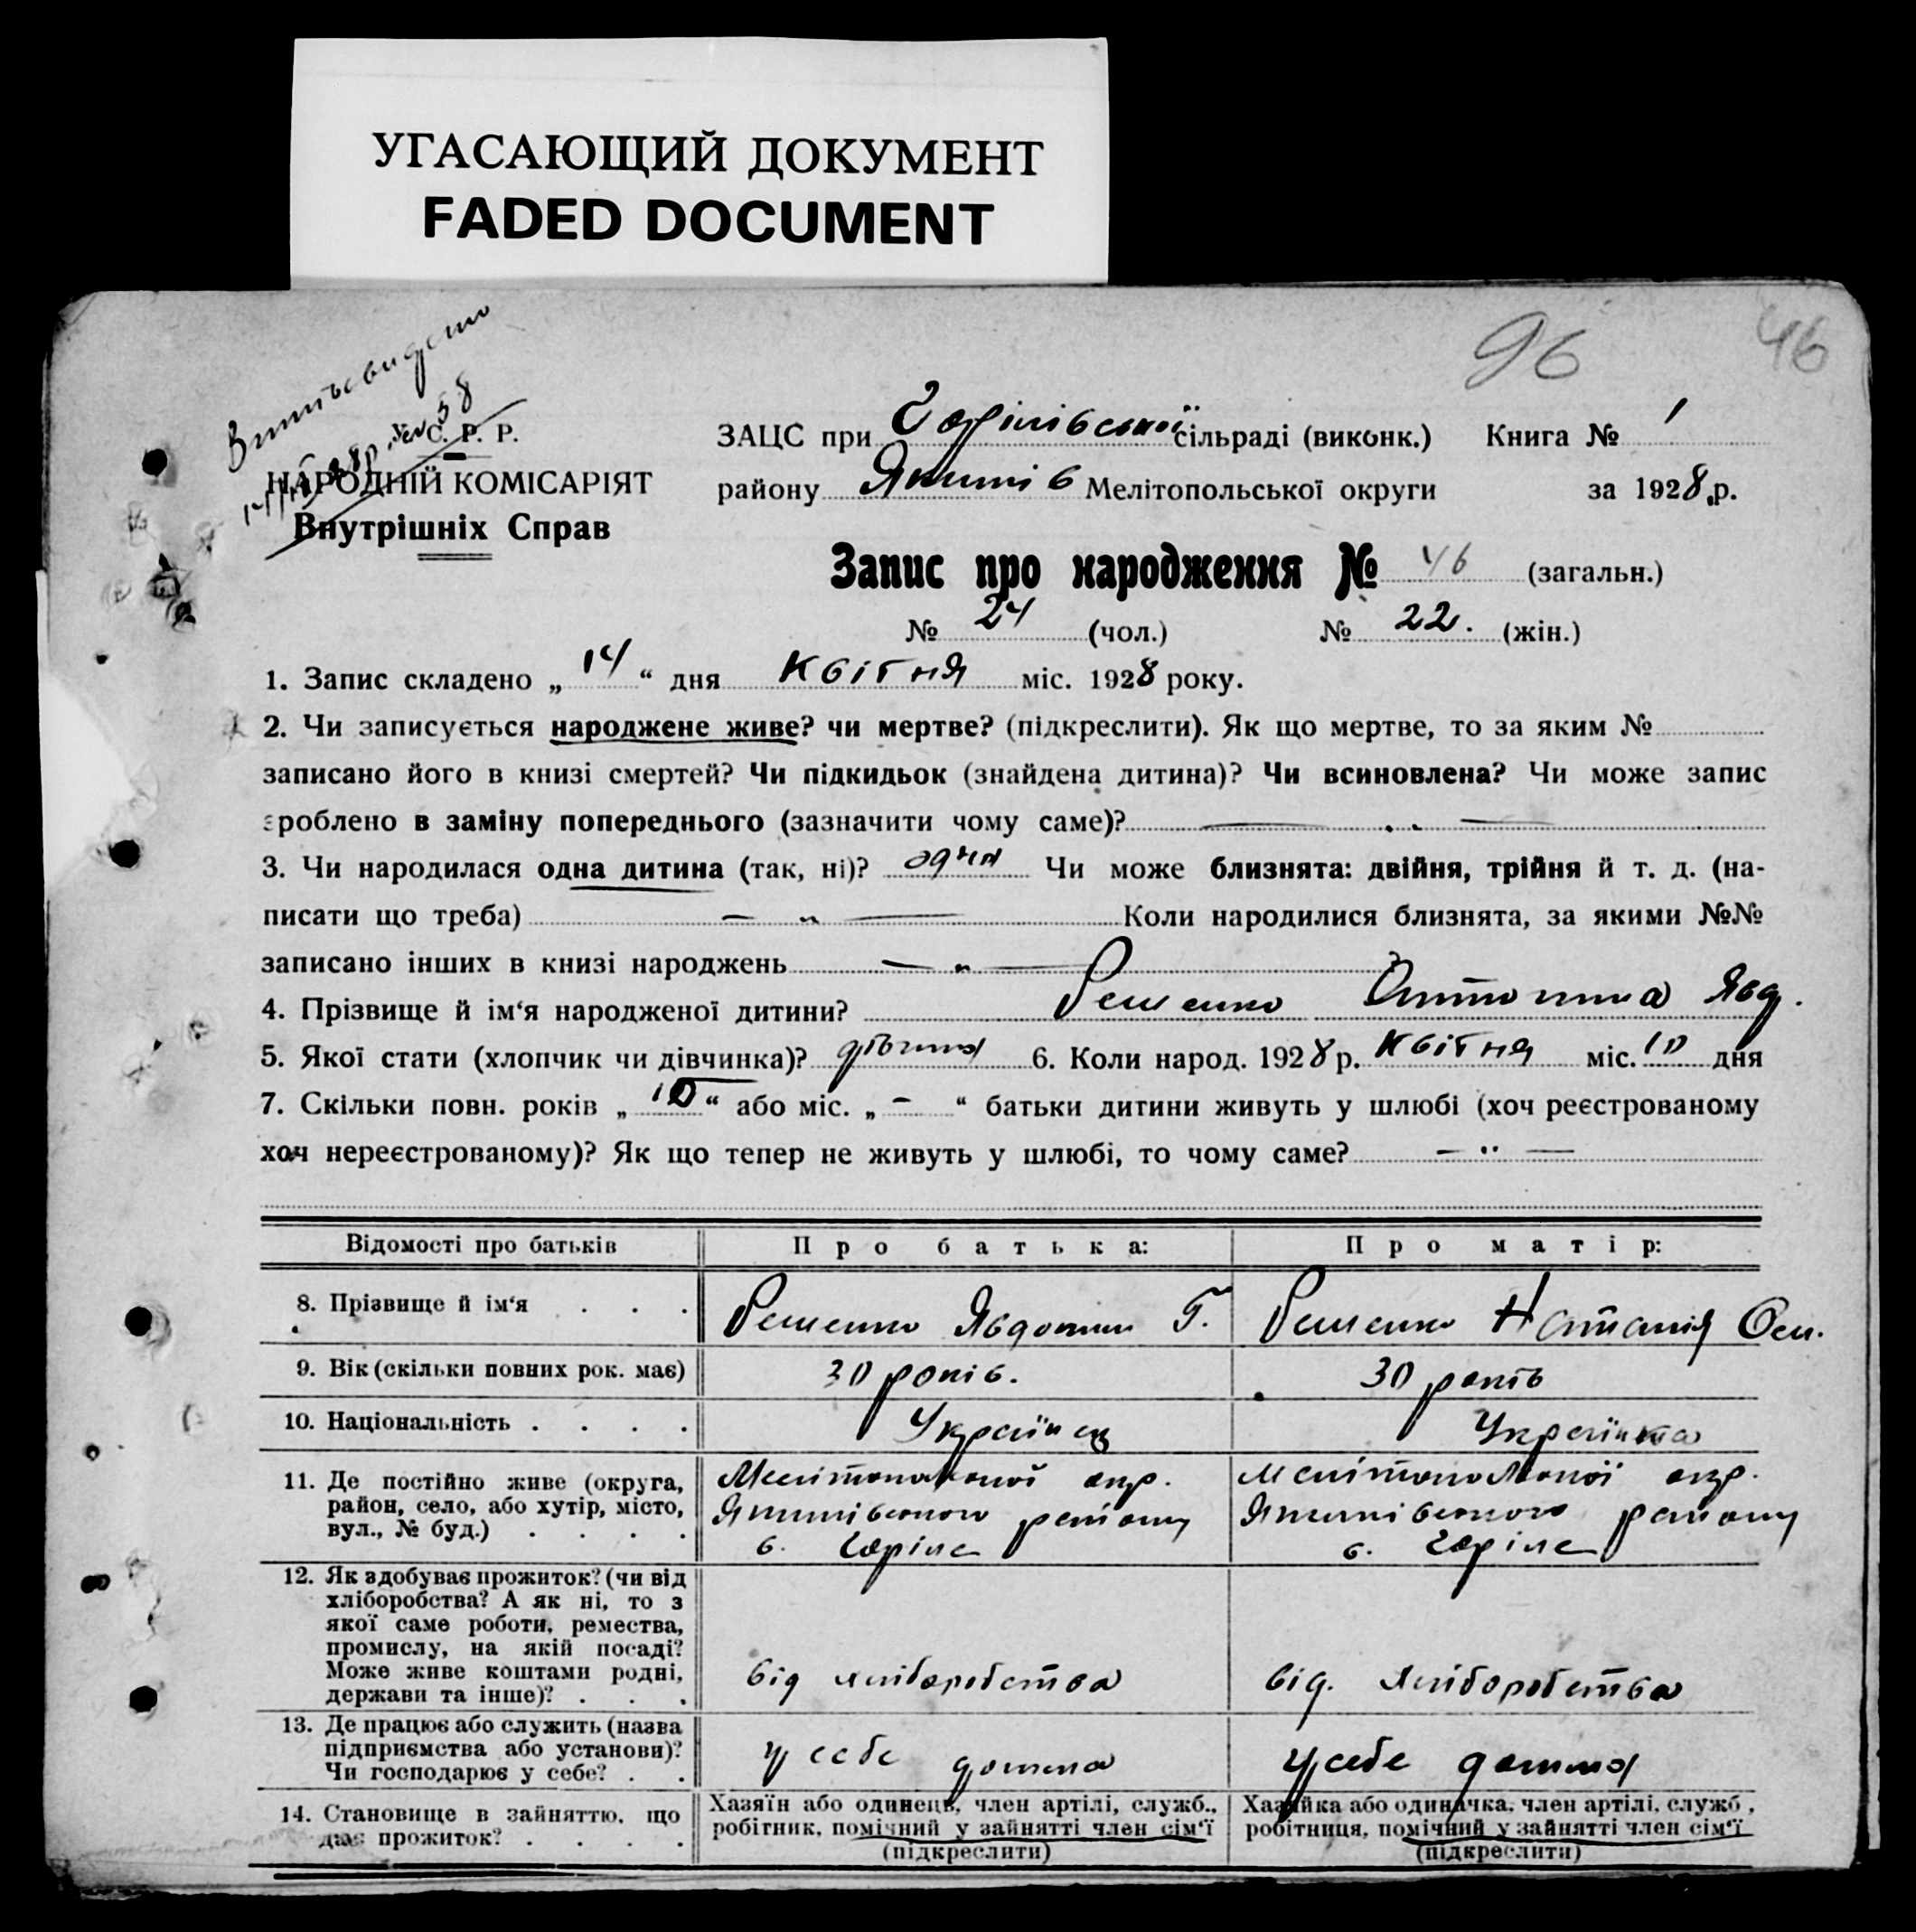 УГАСАЮЩИЙ ДОКУМЕНТ
FADED DOCUMENT
96 46
У. С. Р. Р.
НАРОДНІЙ КОМІСАРІЯТ
Внутрішніх Справ
ЗАЦС при Горілівської сільраді (виконк.) Книга № 1
району Якимів Мелітопольської округи за 1928 р.
Запис про народження № 46 (загальн.)
№ 24 (чол.) № 22. (жін.)
1. Запис складено „14“ дня квітня міс. 1928 року.
2. Чи записується народжене живе? чи мертве? (підкреслити). Як що мертве, то за яким №
записано його в книзі смертей? Чи підкидьок (знайдена дитина)? Чи всиновлена? Чи може запис
зроблено в заміну попереднього (зазначити чому саме)? — „ —
3. Чи народилася одна дитина (так, ні)? одна Чи може близнята: двійня, трійня й т. д. (на-
писати що треба) — „ — Коли народилися близнята, за якими №№
записано інших в книзі народжень — „ —
4. Прізвище й ім‘я народженої дитини? Решенко Антонина Явд.
5. Якої стати (хлопчик чи дівчинка)? дівчина 6. Коли народ. 1928 р. квітня міс. 10 дня
7. Скільки повн. років „10“ або міс. „-“ батьки дитини живуть у шлюбі (хоч реєстрованому
хоч нереєстрованому)? Як що тепер не живуть у шлюбі, то чому саме? — „ —
Відомості про батьків Про батька: Про матір:
8. Прізвище й ім‘я . . . Решенко Явдоким Г. Решенко Наталія Оси.
9. Вік (скільки повних рок. має) 30 років. 30 років
10. Національність . . . . Українець Українка
11. Де постійно живе (округа,
район, село, або хутір, місто,
вул., № буд.) . . . .
Мелітопольської окр.
Якимівського району
с. Горіле
Мелітопольської окр.
Якимівського району
с. Горіле
12. Як здобуває прожиток? (чи від
хліборобства? А як ні, то з
якої саме роботи, ремества,
промислу, на якій посаді?
Може живе коштами родні,
держави та інше)? . . .
від хліборобства
від. хліборобства
13. Де працює або служить (назва
підприємства або установи)?
Чи господарює у себе? . .
у себе дома
у себе дома
14. Становище в зайняттю, що
дає прожиток? . . . .
Хазяїн або одинець, член артілі, служб.,
робітник, помічний у зайнятті член сім‘ї
(підкреслити)
Хазяйка або одиначка, член артілі, служб.,
робітниця, помічний у зайнятті член сім‘ї
(підкреслити)